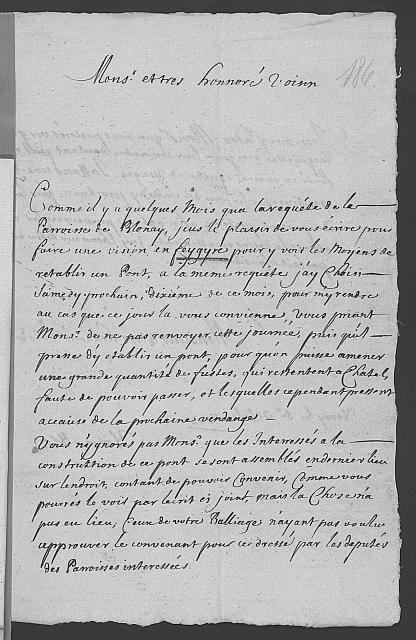 186
Mons.r et tres honnoré Voisin
Comme il y a quelques Mois qua la requête de la
Parroisse de Blonay, j'eus le plaisir de vous écrire pour
faire une vision en feygire pour y voir les Moyens de
retablir un Pont, a la meme requête j'ay Choisi
Samedy prochain, dixiéme de ce mois, pour my rendre
au cas que ce jour la vous convienne, Vous priant
Mons.r de ne pas renvoyer cette journée, puis qu'il
presse d'y etablir un pont, pour qu'on puisse amener
une grande quantité de fustes, qui restent en Chatel,
faute de pouvoir passer, et lesquelles cependant pressent
accause de la prochaine vendange
Vous n'ignorés pas Mons.r que les Interessés a la
construction de ce pont se sont assemblés en dernier lieu
sur lendroit, contant de pouvoir Convenir, Comme vous
pourrés le vois par lecrit ci joint, mais la Chose na
pas eu lieu, Ceux de votre Balliage n'ayant pas voulu
approuver le convenant pour ce dressé par les deputés
des Parroisses interessées